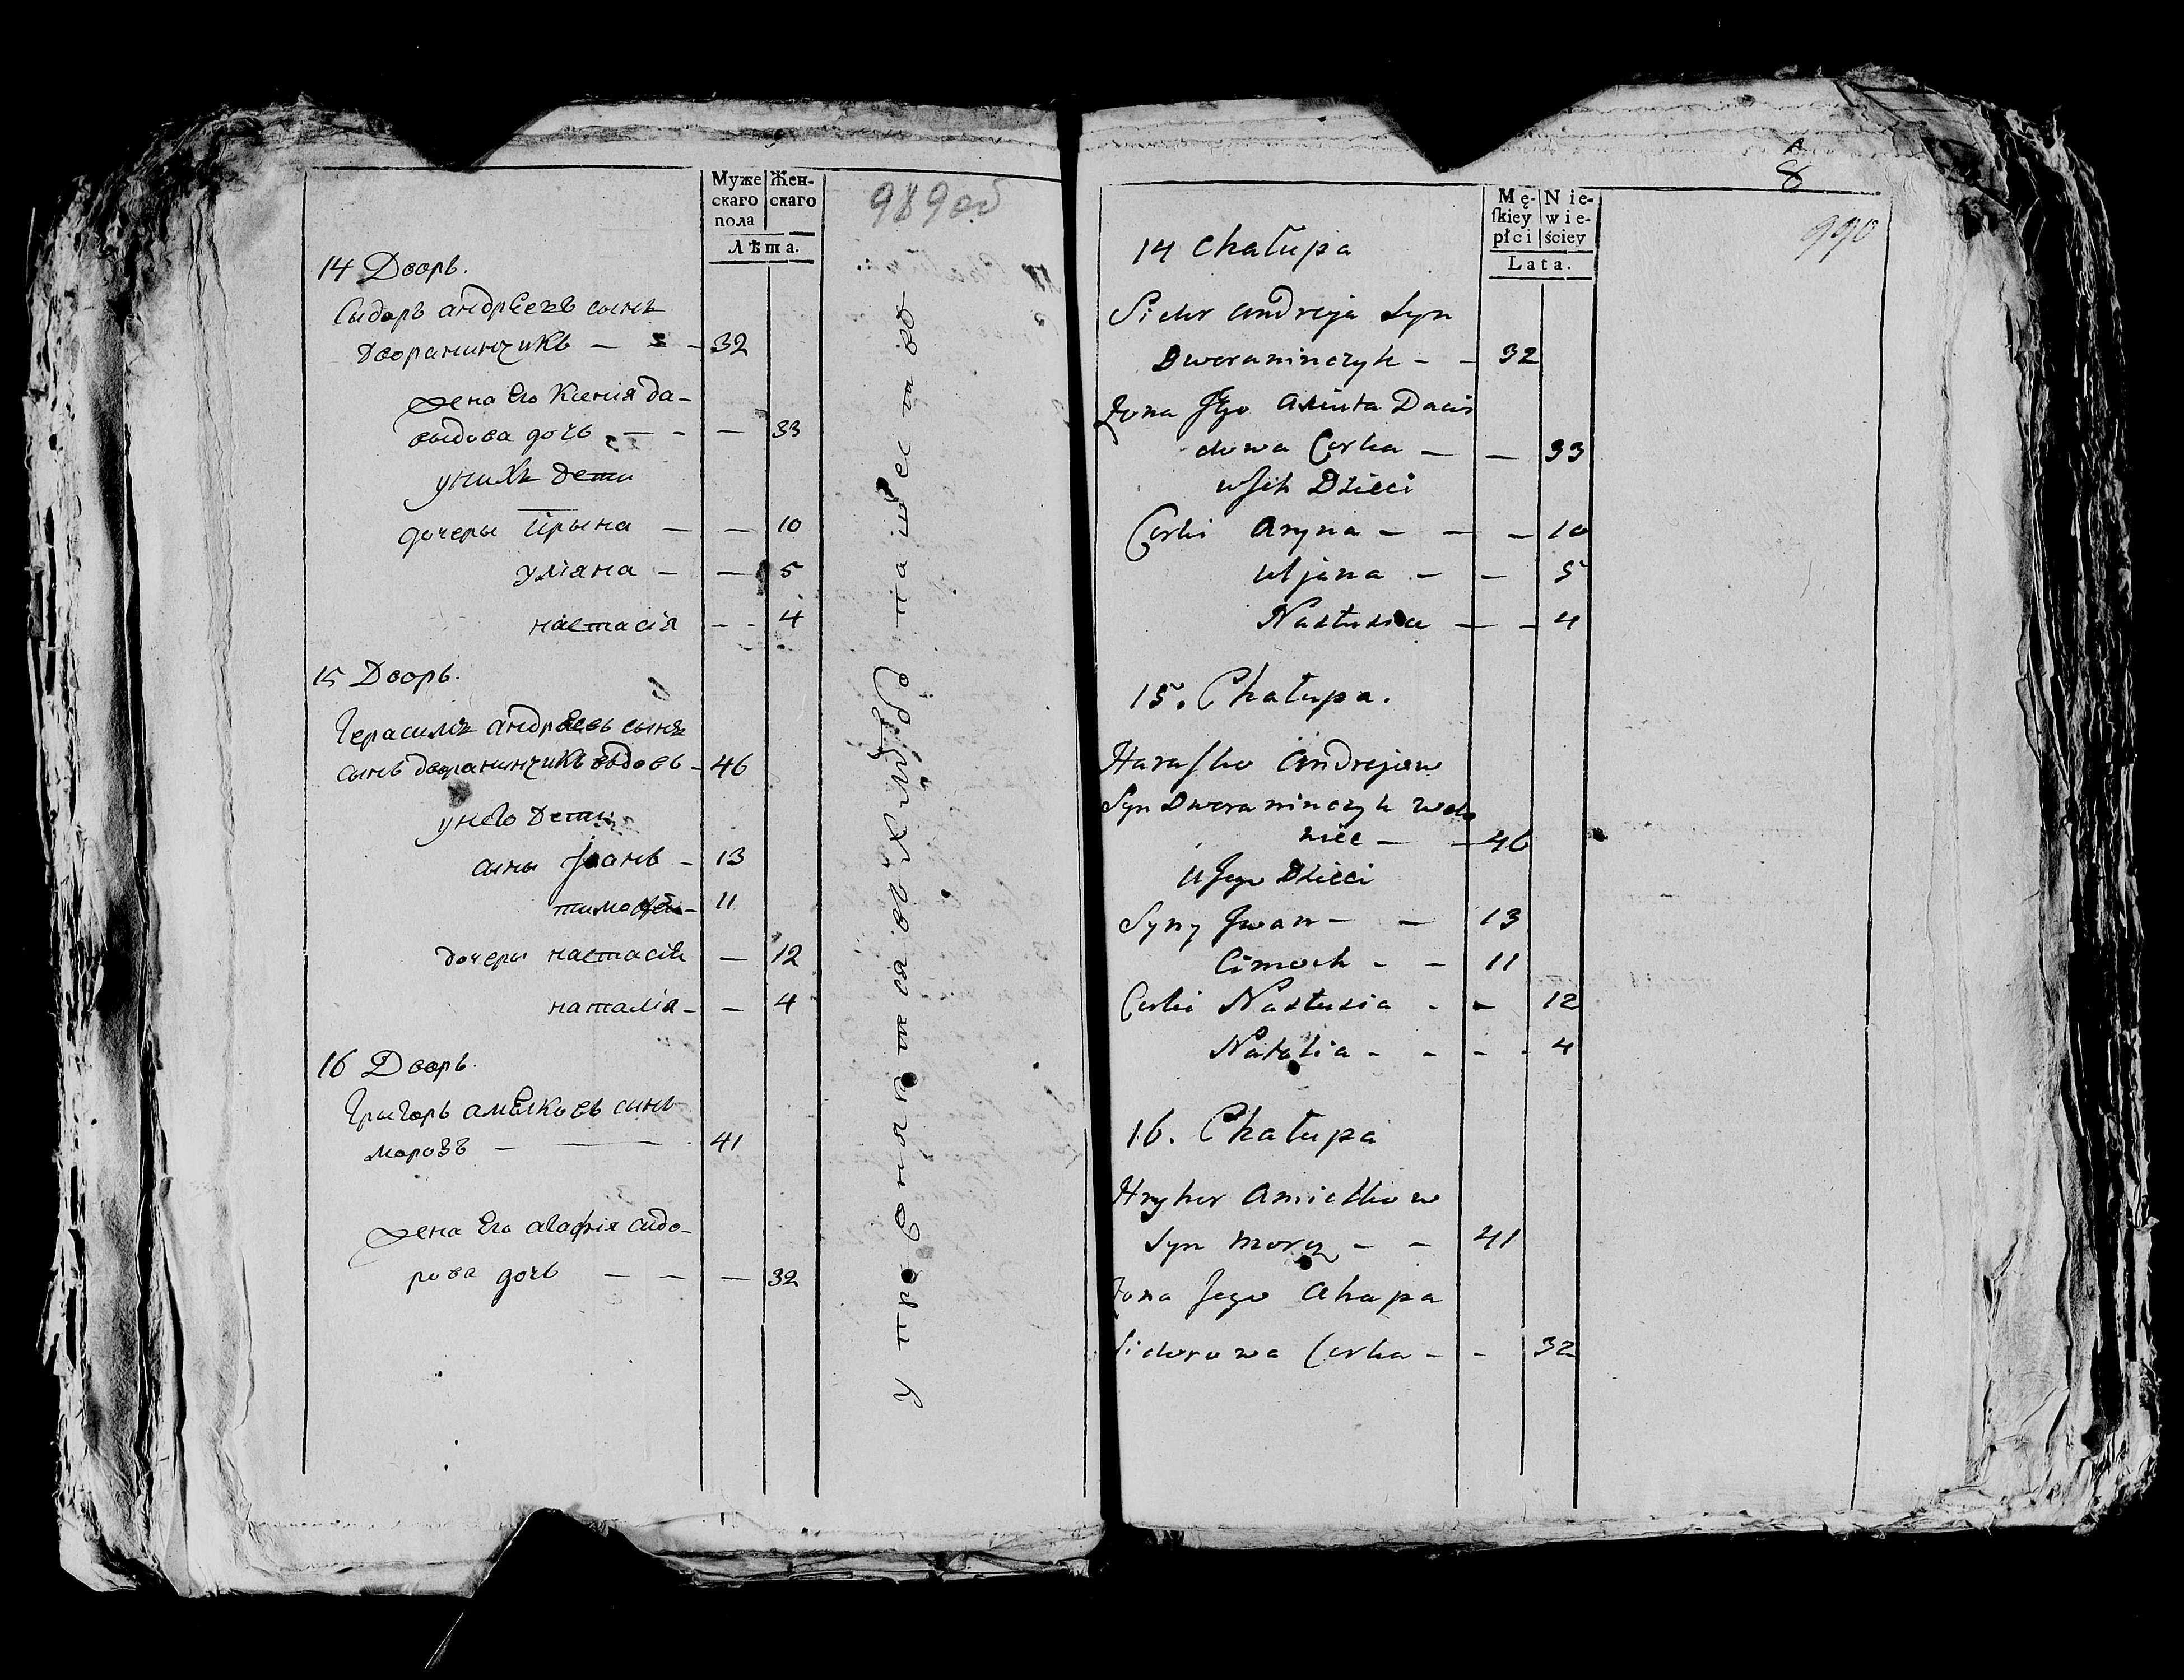 Муже
скаго
пола
Жен-
скаго
Лѣта.
989 об
14 Дворъ.
Сыдоръ андрѣевъ сынъ
дворанинчикъ — — 32
жена Его Ксенія да-
выдова дочь — — — 33
унихъ дети
дочеры Ирына — — 10
уліяна — — 5
настасія — - 4
15 Дворъ.
Герасимъ андрѣевъ сынъ
сынъ дворанинчикъ вдовъ - 46
унего дети
сины Іванъ - 13
тимофей - 11
дочеры настасія — 12
наталія - — 4
16 Дворъ.
Григоръ амелковъ синъ
морозъ — — 41
жена Его агафія сидо-
рова дочь — — — 32
Mę-
ſkiey
płci
Nie-
wie-
ściey
Lata.
8
990
14 Chałupa
Sidor Andreja Syn
Dworaninczyk - - 32
Żona Jego Axiuta Dawi
dowa Corka — — 33
u Jch Dzieci
Corki Aryna - — - 10
Uljana - - 5
Nastusia — - 4
15. Chałupa.
Haraſko Andrejow
Syn Dworaninczyk Wdo
wiec — - 46
u Jego Dzieci
Syny Jwan - — 13
Cimoch - - 11
Corki Nastusia - - 12
Natalia - - - - 4
16. Chałupa
Hryhor Amiełkow
Syn Moroz - - 41
Żona Jego Ahapa
Sidorowa Corka - - 32